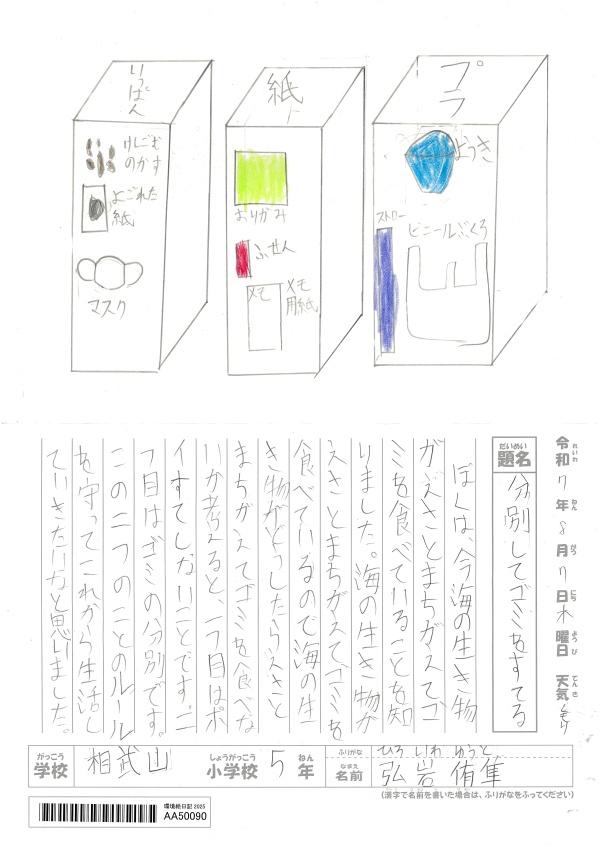 いっぱん
けしごむ
のかす
よごれた
紙
マスク
紙
おりがみ
ふせん
メモ
メモ
用紙
プラ
ようき
ストロー
ビニールぶくろ
令和7年8月7日木曜日 天気
れいわ ねん がつ にち ようび てんき
だいめい
題名 分別してゴミをすてる
ぼくは、今海の生き物
がえさとまちがえてゴ
ミを食べていることを知
りました。海の生き物が
えさとまちがえてゴミを
食べているので海の生
き物がどうしたらえさと
まちがえてゴミを食べな
いか考えると、一つ目はポ
イすてしないことです。二
つ目はゴミの分別です。
この二つのことのルール
を守ってこれから生活し
ていきたいなと思いました。
がっこう しょうがっこう ねん
学校 相武山 小学校 5年
ふりがな ひろ いわ ゆうと
なまえ
名前 弘岩侑隼
(漢字で名前を書いた場合は、ふりがなをふってください)
環境絵日記 2025
AA50090